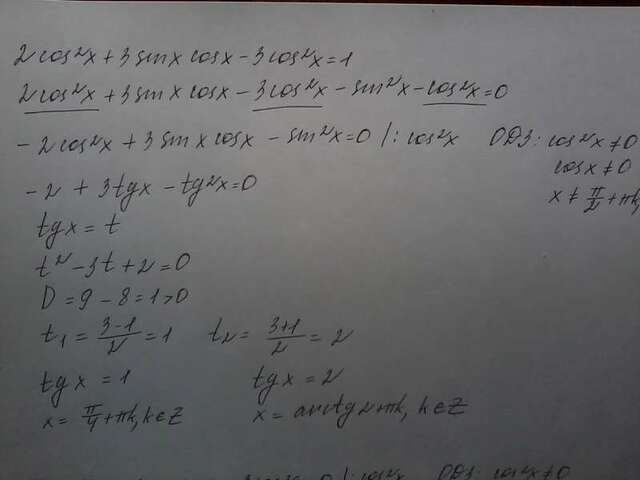 2cos²x + 3sinx cosx - 3cos²x = 1
2cos²x + 3sinx cosx - 3cos²x - sin²x - cos²x = 0
- 2cos²x + 3sinx cosx - sin²x = 0 /: cos²x ОДЗ: cos²x ≠ 0
cosx ≠ 0
x ≠ π/2 + πk,
- 2 + 3tgx - tg²x = 0
tgx = t
t² - 3t + 2 = 0
D = 9 - 8 = 1 > 0
t₁ = (3-1)/2 = 1 t₂ = (3+1)/2 = 2
tgx = 1 tgx = 2
x = π/4 + πk, k∈Z x = arctg2 + πk, k∈Z
/: cos²x ОДЗ: cos²x ≠ 0